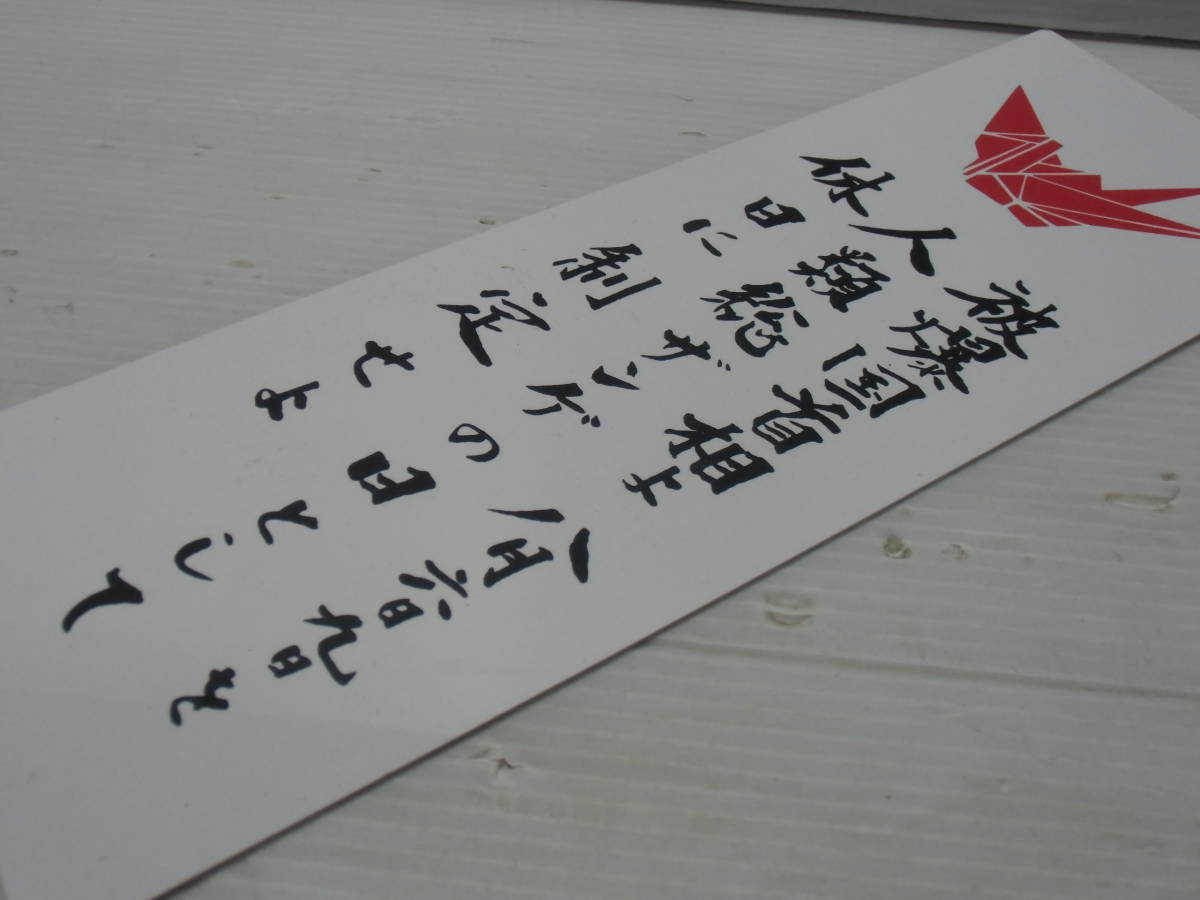 被爆国首相よ 八月六日九日を
人類総ザンゲの日として
休日に制定せよ